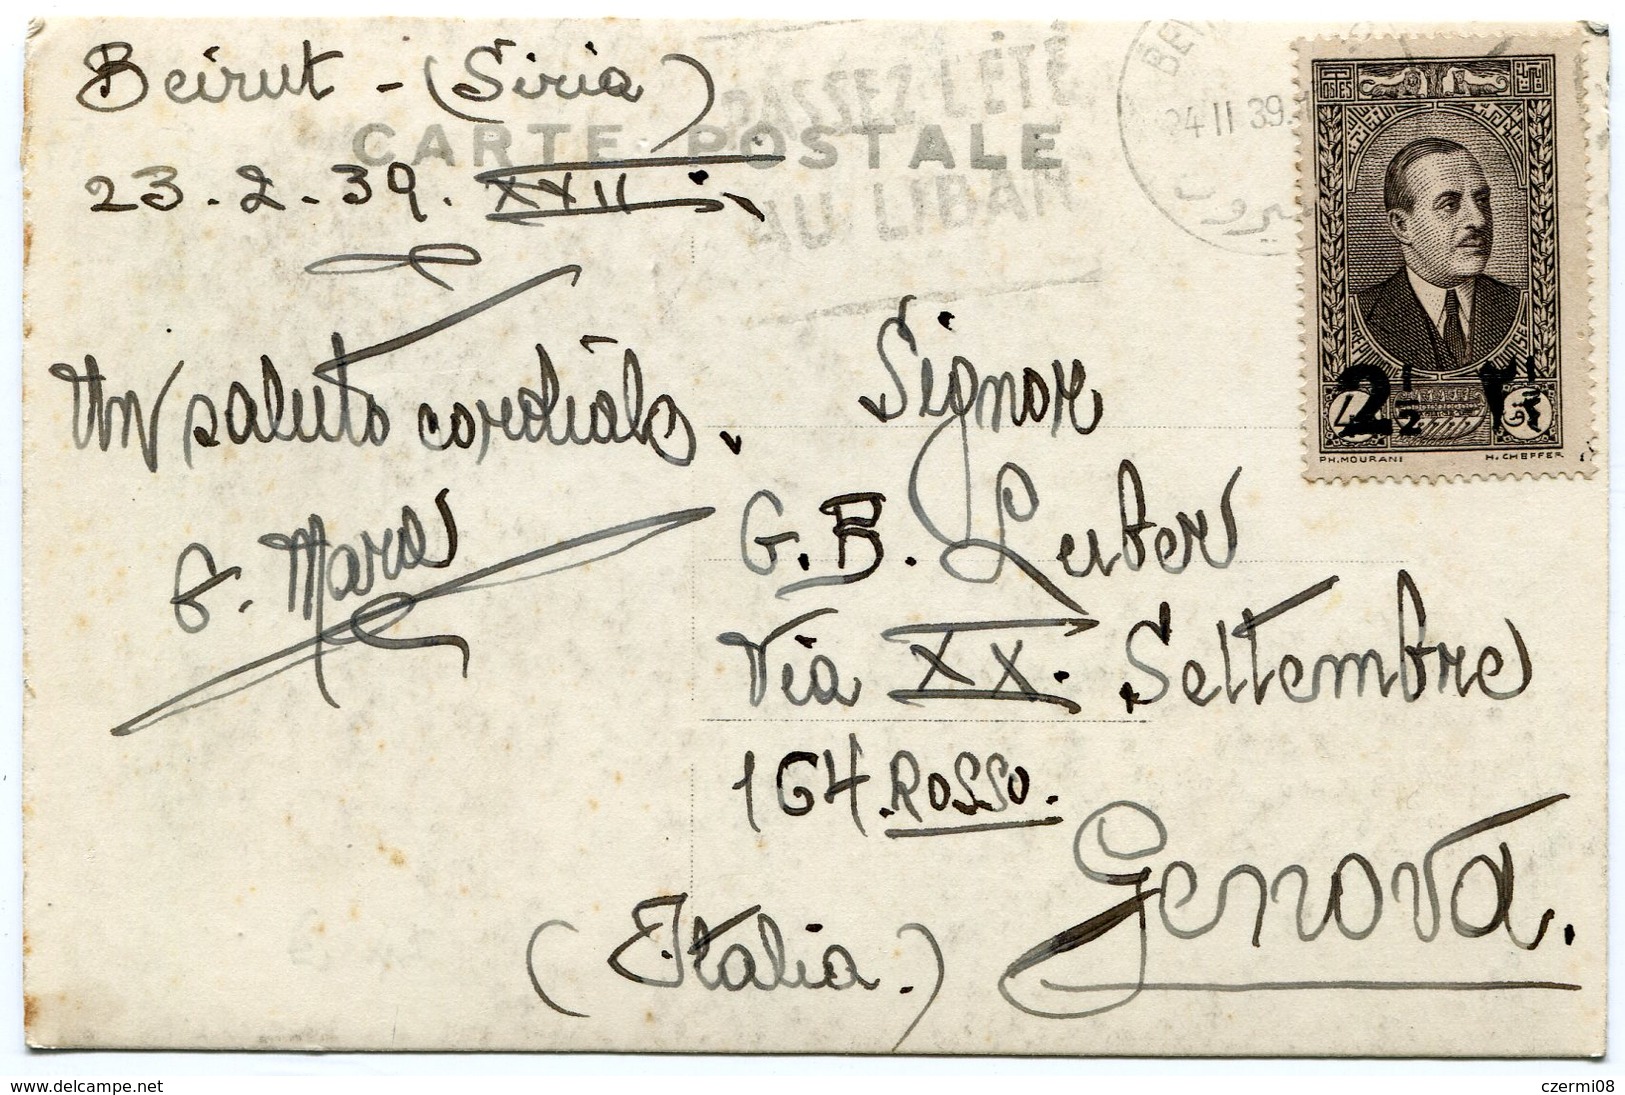 Beirut - (Siria)
23.2.39. XVII
CARTE POSTALE
PASSEZ L'ÉTÉ
AU LIBAN
24 II 39
بيروت
POSTES
2½ ٢½
PH. MOURANI H. CHEFFER
Un saluto cordiale.
Signor
G.B.
Via XX. Settembre
164. ROSSO.
Genova.
(Italia.)
www.delcampe.net
czermi08